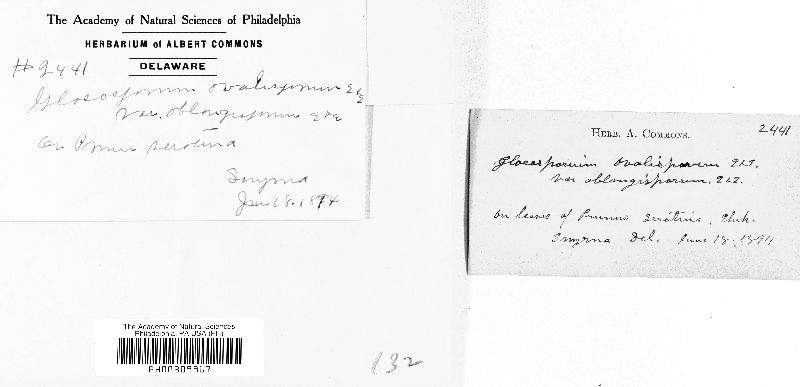 The Academy of Natural Sciences of Philadelphia
HERBARIUM of ALBERT COMMONS
DELAWARE
#2441
Gloeosporium ovalisporum E & E
var. oblongisporum E & E
On Prunus serotina
Smyrna
June 18. 1894
HERB. A. COMMONS.
2441
Gloeosporium ovalisporum E & E.
var oblongisporum. E & E.
On leaves of Prunus serotina, Ehrh.
Smyrna Del. June 18. 1894
The Academy of Natural Sciences
Philadelphia, PA USA (PH)
132